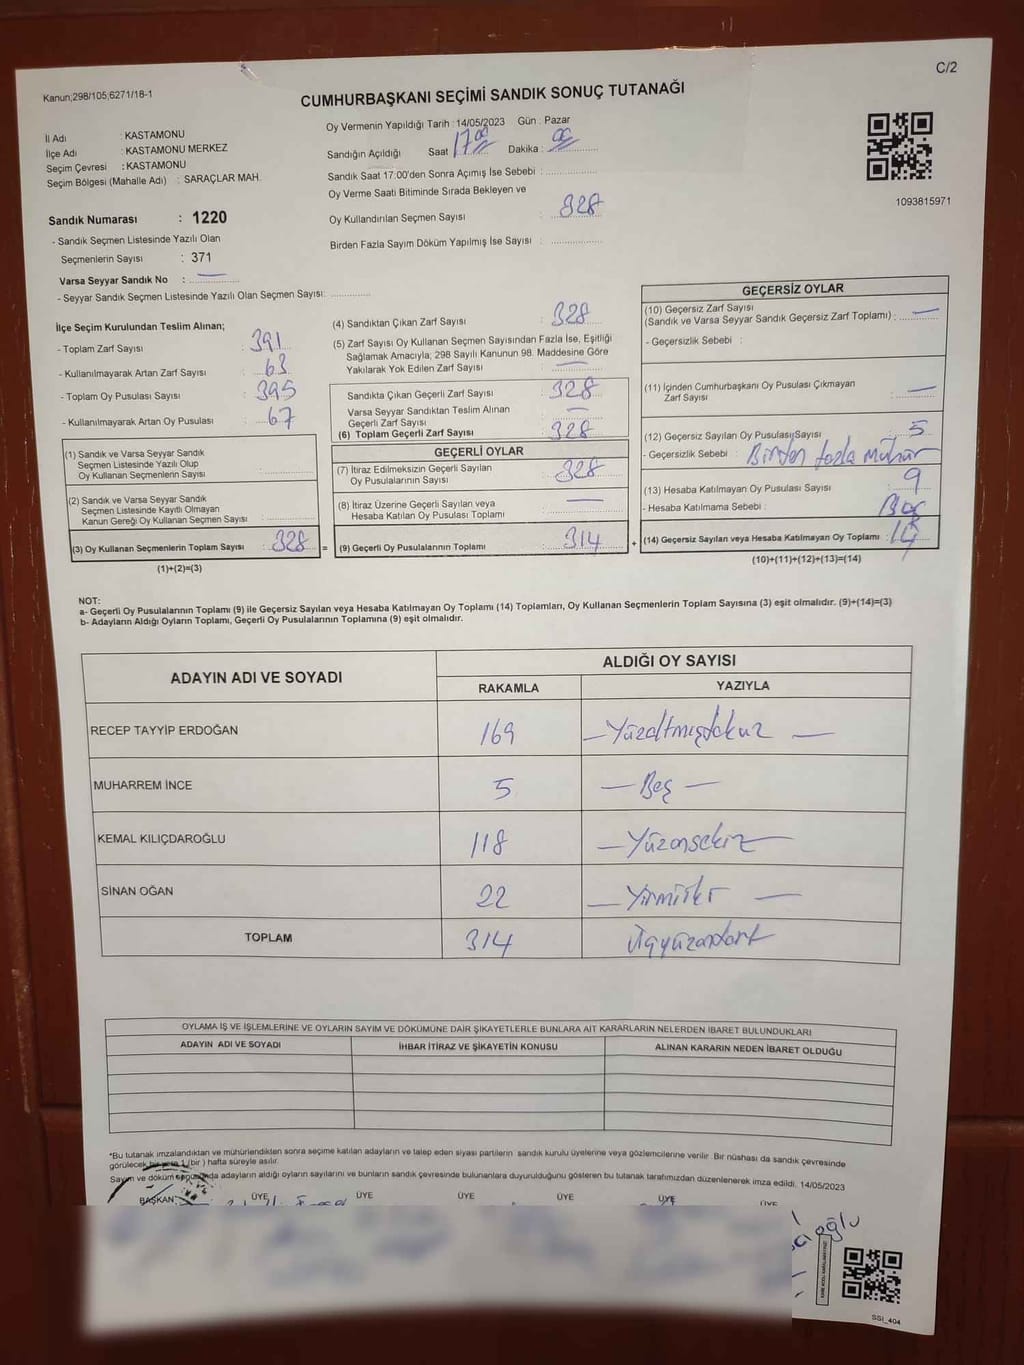 C/2
Kanun;298/105;6271/18-1
CUMHURBAŞKANI SEÇİMİ SANDIK SONUÇ TUTANAĞI
İl Adı : KASTAMONU
İlçe Adı : KASTAMONU MERKEZ
Seçim Çevresi : KASTAMONU
Seçim Bölgesi (Mahalle Adı) : SARAÇLAR MAH.
Sandık Numarası : 1220
- Sandık Seçmen Listesinde Yazılı Olan
Seçmenlerin Sayısı : 371
Varsa Seyyar Sandık No : —
- Seyyar Sandık Seçmen Listesinde Yazılı Olan Seçmen Sayısı:
Oy Vermenin Yapıldığı Tarih : 14/05/2023 Gün : Pazar
Sandığın Açıldığı Saat : 17 00 Dakika : 00
Sandık Saat 17:00'den Sonra Açımış İse Sebebi :
Oy Verme Saati Bitiminde Sırada Bekleyen ve
Oy Kullandırılan Seçmen Sayısı : 328
Birden Fazla Sayım Döküm Yapılmış İse Sayısı :
1093815971
İlçe Seçim Kurulundan Teslim Alınan;
- Toplam Zarf Sayısı : 391
- Kullanılmayarak Artan Zarf Sayısı : 63
- Toplam Oy Pusulası Sayısı : 395
- Kullanılmayarak Artan Oy Pusulası : 67
(1) Sandık ve Varsa Seyyar Sandık
Seçmen Listesinde Yazılı Olup
Oy Kullanan Seçmenlerin Sayısı :
(2) Sandık ve Varsa Seyyar Sandık
Seçmen Listesinde Kayıtlı Olmayan
Kanun Gereği Oy Kullanan Seçmen Sayısı :
(3) Oy Kullanan Seçmenlerin Toplam Sayısı : 328 =
(1)+(2)=(3)
(4) Sandıktan Çıkan Zarf Sayısı : 328
(5) Zarf Sayısı Oy Kullanan Seçmen Sayısından Fazla İse, Eşitliği
Sağlamak Amacıyla; 298 Sayılı Kanunun 98. Maddesine Göre
Yakılarak Yok Edilen Zarf Sayısı : —
Sandıkta Çıkan Geçerli Zarf Sayısı : 328
Varsa Seyyar Sandıktan Teslim Alınan
Geçerli Zarf Sayısı : —
(6) Toplam Geçerli Zarf Sayısı : 328
GEÇERLİ OYLAR
(7) İtiraz Edilmeksizin Geçerli Sayılan
Oy Pusulalarının Sayısı : 328
(8) İtiraz Üzerine Geçerli Sayılan veya
Hesaba Katılan Oy Pusulası Toplamı : —
(9) Geçerli Oy Pusulalarının Toplamı : 314 +
GEÇERSİZ OYLAR
(10) Geçersiz Zarf Sayısı
(Sandık ve Varsa Seyyar Sandık Geçersiz Zarf Toplamı) : —
- Geçersizlik Sebebi :
(11) İçinden Cumhurbaşkanı Oy Pusulası Çıkmayan
Zarf Sayısı : —
(12) Geçersiz Sayılan Oy Pusulası Sayısı : 5
- Geçersizlik Sebebi : Birden fazla mühür
(13) Hesaba Katılmayan Oy Pusulası Sayısı : 9
- Hesaba Katılmama Sebebi : Boş
(14) Geçersiz Sayılan veya Hesaba Katılmayan Oy Toplamı : 14
(10)+(11)+(12)+(13)=(14)
NOT:
a- Geçerli Oy Pusulalarının Toplamı (9) ile Geçersiz Sayılan veya Hesaba Katılmayan Oy Toplamı (14) Toplamları, Oy Kullanan Seçmenlerin Toplam Sayısına (3) eşit olmalıdır. (9)+(14)=(3)
b- Adayların Aldığı Oyların Toplamı, Geçerli Oy Pusulalarının Toplamına (9) eşit olmalıdır.
ADAYIN ADI VE SOYADI ALDIĞI OY SAYISI
RAKAMLA YAZIYLA
RECEP TAYYİP ERDOĞAN 169 — Yüzaltmışdokuz —
MUHARREM İNCE 5 — Beş —
KEMAL KILIÇDAROĞLU 118 — Yüzonsekiz —
SİNAN OĞAN 22 — Yirmiiki —
TOPLAM 314 Üçyüzondört
OYLAMA İŞ VE İŞLEMLERİNE VE OYLARIN SAYIM VE DÖKÜMÜNE DAİR ŞİKAYETLERLE BUNLARA AİT KARARLARIN NELERDEN İBARET BULUNDUKLARI
ADAYIN ADI VE SOYADI İHBAR İTİRAZ VE ŞİKAYETİN KONUSU ALINAN KARARIN NEDEN İBARET OLDUĞU
*Bu tutanak imzalandıktan ve mühürlendikten sonra seçime katılan adayların ve talep eden siyasi partilerin sandık kurulu üyelerine veya gözlemcilerine verilir. Bir nüshası da sandık çevresinde
görülecek bir yere 1 (bir) hafta süreyle asılır.
Sayım ve döküm sonucunda adayların aldığı oyların sayılarını ve bunların sandık çevresinde bulunanlara duyurulduğunu gösteren bu tutanak tarafımızdan düzenlenerek imza edildi. 14/05/2023
BAŞKAN ÜYE ÜYE ÜYE ÜYE ÜYE ÜYE
SSI_404